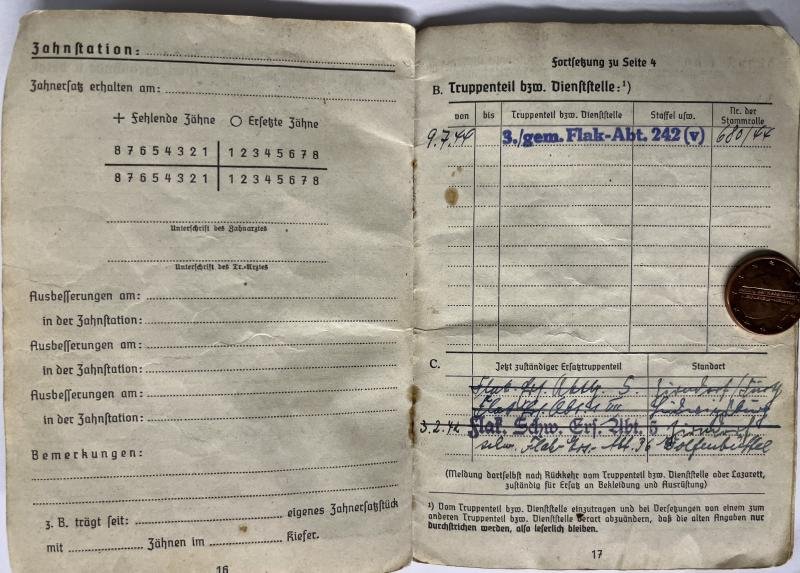 Zahnstation:
Zahnersatz erhalten am:
+ Fehlende Zähne O Ersetzte Zähne
8 7 6 5 4 3 2 1 | 1 2 3 4 5 6 7 8
8 7 6 5 4 3 2 1 | 1 2 3 4 5 6 7 8
Unterschrift des Zahnarztes
Unterschrift des Tr.-Arztes
Ausbesserungen am:
in der Zahnstation:
Ausbesserungen am:
in der Zahnstation:
Ausbesserungen am:
in der Zahnstation:
Bemerkungen:
z. B. trägt seit: eigenes Zahnersatzstück
mit Zähnen im Kiefer.
16
Fortsetzung zu Seite 4
B. Truppenteil bzw. Dienststelle:¹)
von bis Truppenteil bzw. Dienststelle Staffel usw. Nr. der Stammrolle
9.7.44 3./gem. Flak-Abt. 242 (v) 680/44
C. Jetzt zuständiger Ersatztruppenteil Standort
Flak. Schw. Ers. Abt. 5
schw. Flak-Ers.-Abt. 36 Wolfenbüttel
(Meldung dortselbst nach Rückkehr vom Truppenteil bzw. Dienststelle oder Lazarett,
zuständig für Ersatz an Bekleidung und Ausrüstung)
¹) Vom Truppenteil bzw. Dienststelle einzutragen und bei Versetzungen von einem zum
anderen Truppenteil bzw. Dienststelle derart abzuändern, daß die alten Angaben nur
durchstrichen werden, also leserlich bleiben.
17